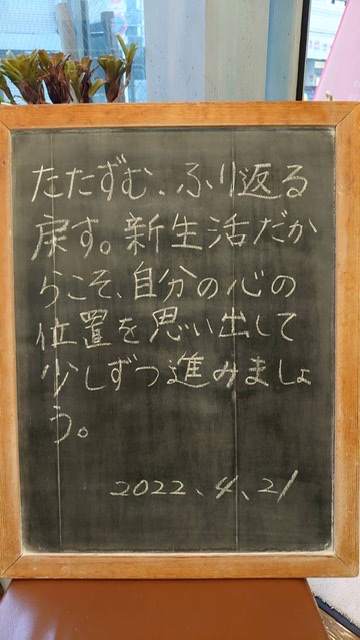 たたずむ、ふり返る
戻す。新生活だか
らこそ、自分の心の
位置を思い出して
少しずつ進みましょ
う。
2022、4、21